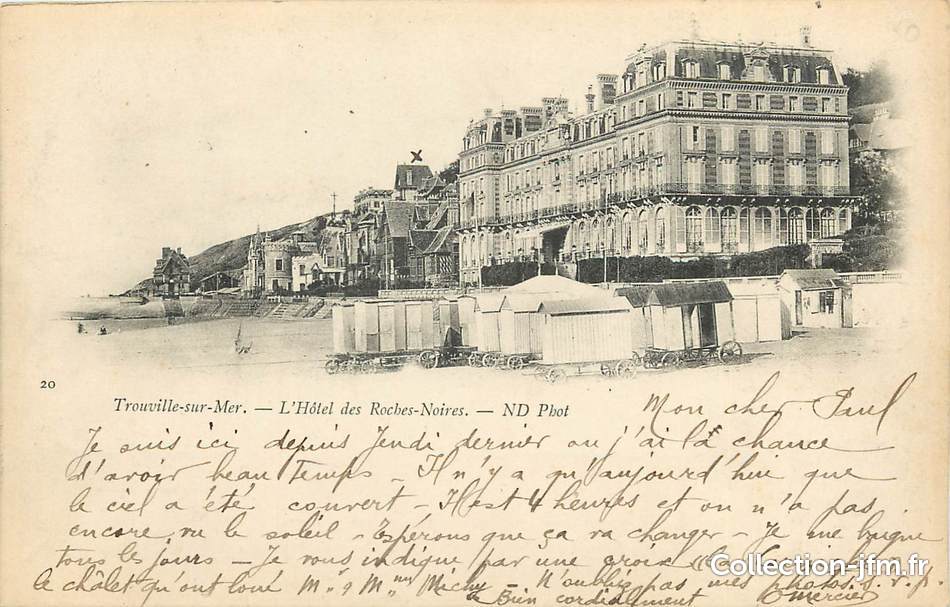 20
Trouville-sur-Mer. — L'Hôtel des Roches-Noires. — ND Phot
Mon cher Paul
Je suis ici depuis Jeudi dernier ou j'ai la chance
d'avoir beau Temps — Il n'y a qu'aujourd'hui que
le ciel a été couvert — Il est 4 heures et on n'a pas
encore vu le soleil — Espérons que ça va changer — Je me baigne
tous les jours — Je vous indique par une croix
le châlet qu'ont loué Mr & Mme — N'oubliez pas mes photos s.v.p.
Bien cordialement Mercier
Collection-jfm.fr